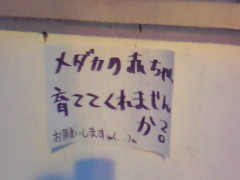 メダカの赤ちゃん
育ててくれません
か?。
お願いします。m(..)m